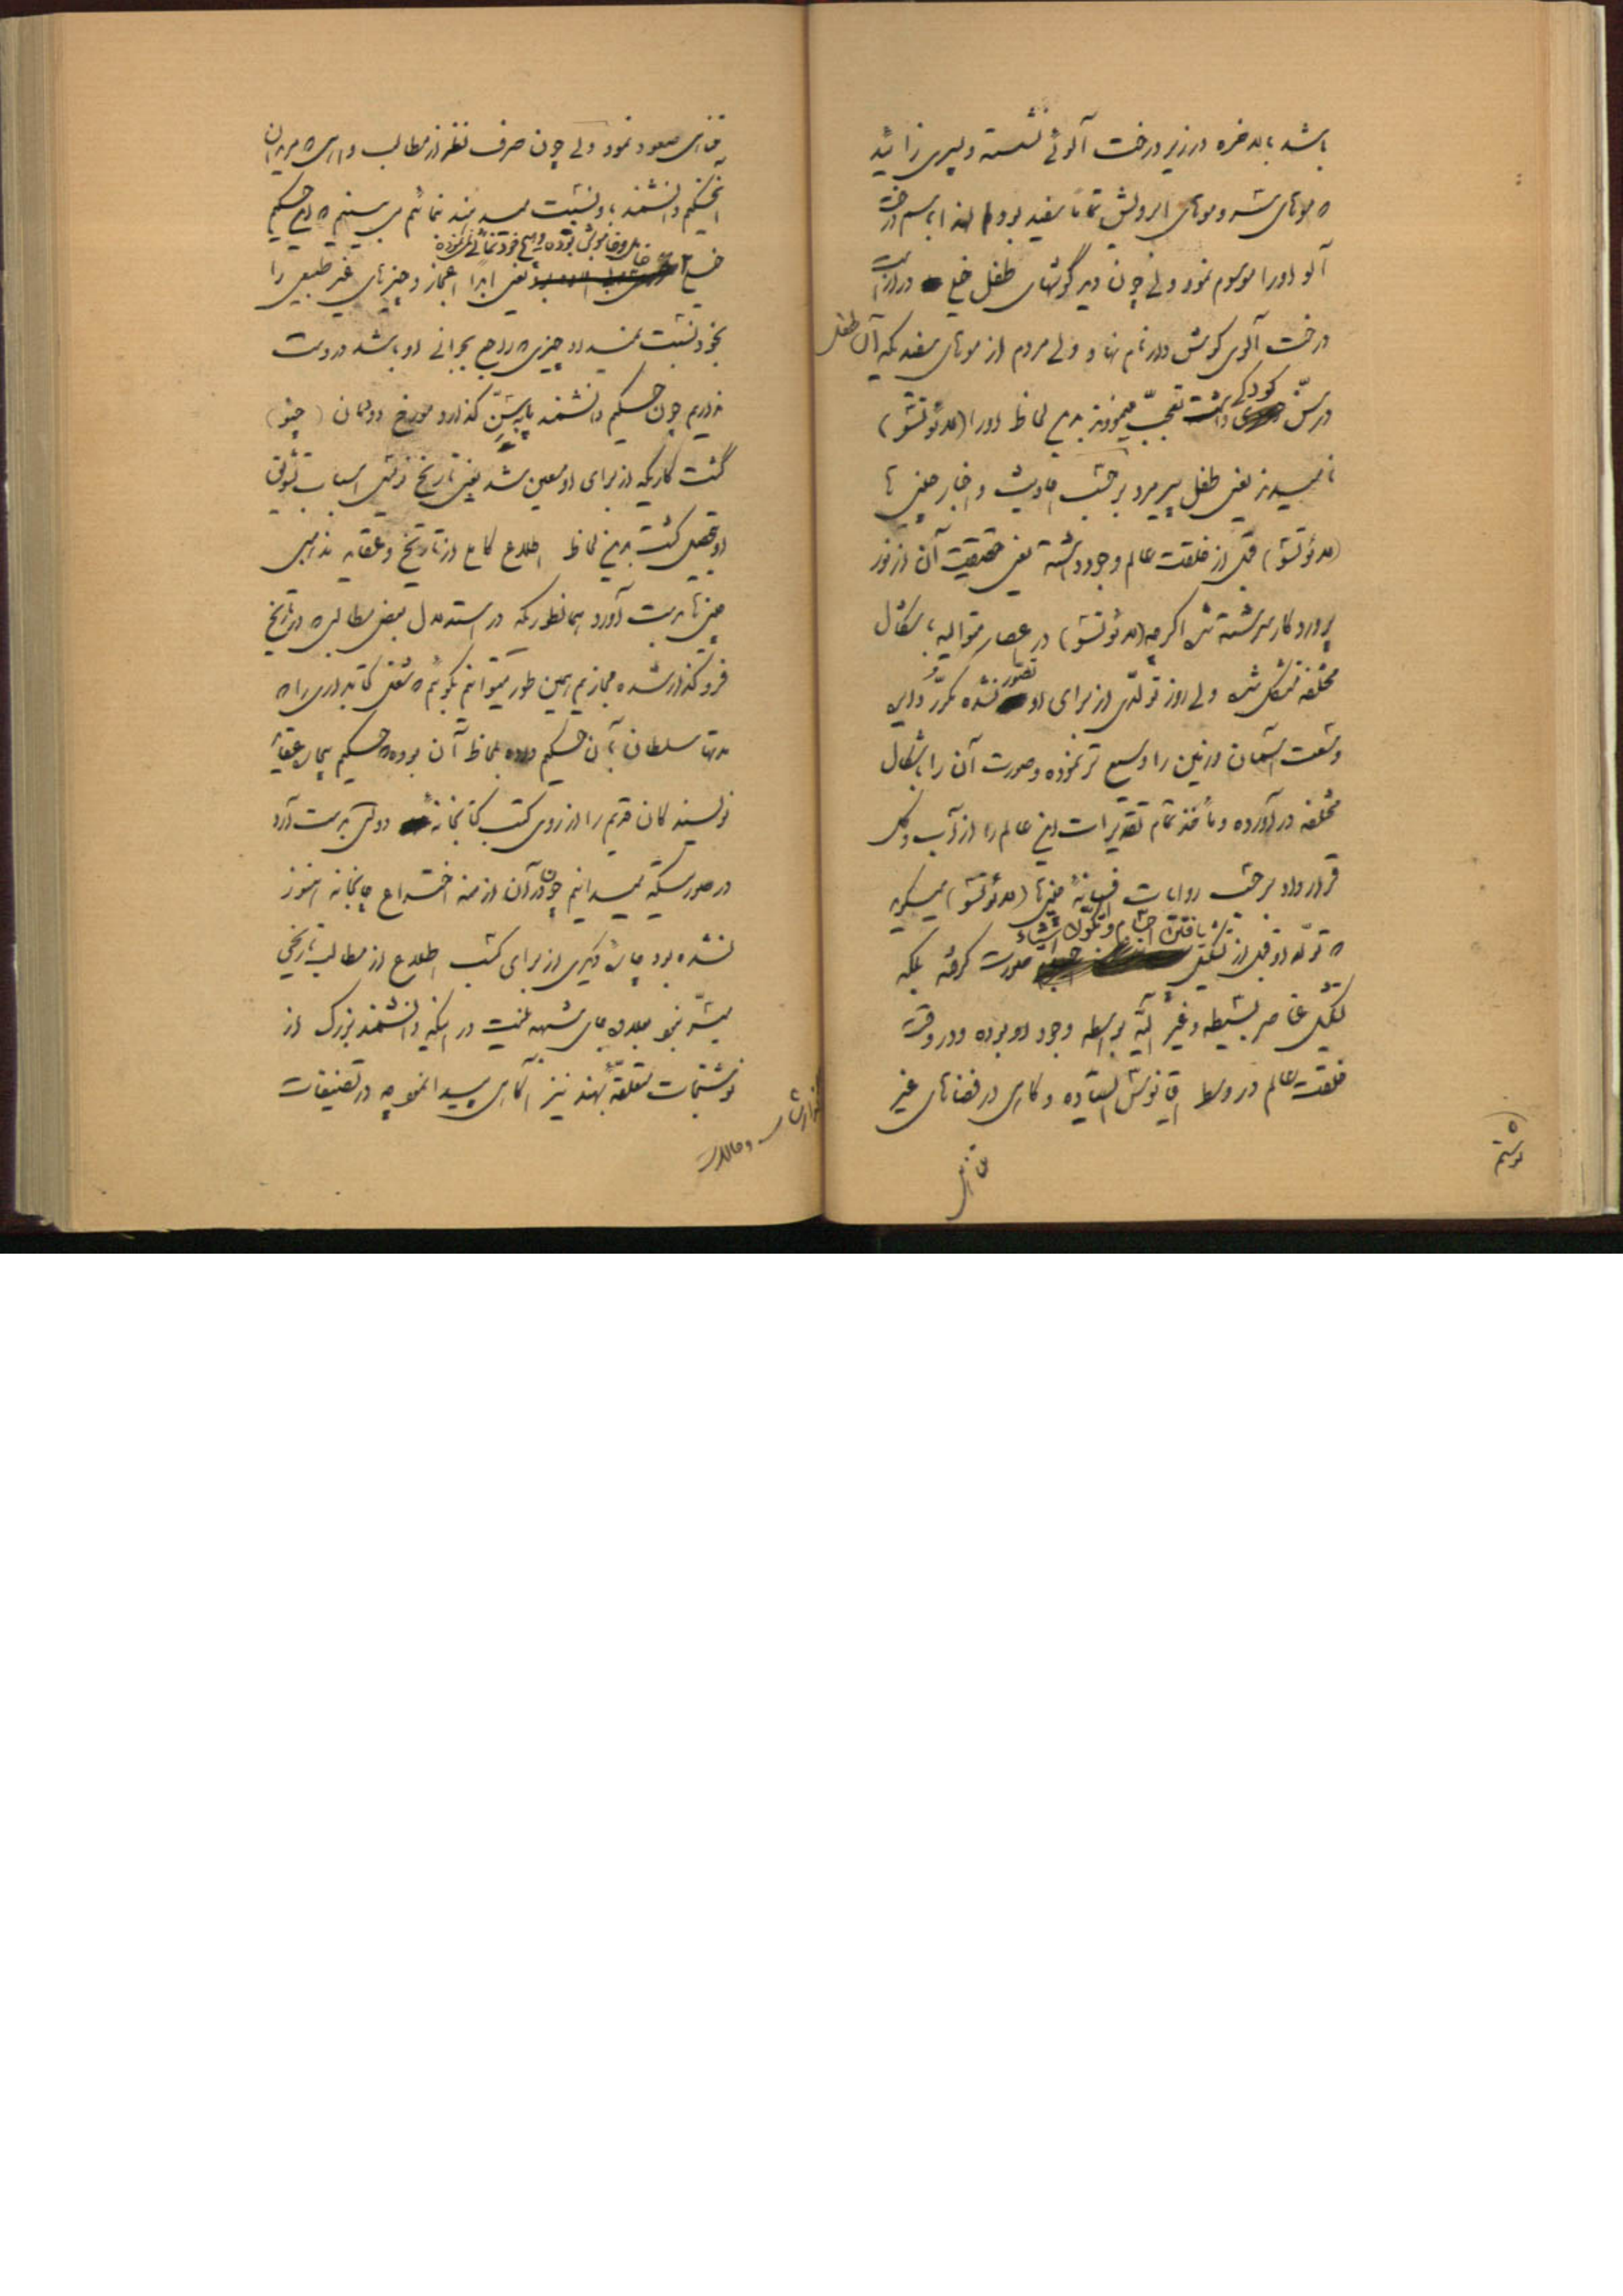 باشد بالاخره در زیر درخت آلوئی نشسته و پسری زائید
که موهای سر و موهای ابرویش تماماً سفید بود لهذا باسم درخت
آلو او را موسوم نمود ولی چون دید گوشهای طفل خیلی دراز است
درخت آلوی گوش دراز نام نهاد ولی مردم از موهای سفیدیکه آن طفل
در سن کودکی داشت تعجب مینمودند بدین لحاظ او را (لائوتسو)
نامیدند یعنی طفل پیر مرد بر حسب احادیث و اخبار چینی ها
(لائوتسو) قبل از خلقت عالم وجود داشته یعنی حقیقت آن از نور
پروردگار سرشته شده اگر چه (لائوتسو) در اعصار متوالیه باشکال
مختلفه متشکل شده ولی روز تولدی از برای او تصور نشده مکرر در این
وسعت آسمان و زمین را وسیع تر نموده و صورت آن را باشکال
مختلفه در آورده و مأخذ تمام تقدیرات این عالم را از آب و گل
قرار داد بر حسب روایات افسانهٔ چینی ها (لائوتسو) میگوید
که تولد او قبل از تشکیل یافتن اجسام و تکون اشیاء صورت گرفته بلکه
تشکیل عناصر بسیطه و غیر آلیه بواسطه وجود او بوده و در وقت
خلقت عالم در وسط اقیانوس ایستاده و گاهی در فضاهای غیر
متناهی
متناهی صعود نمود ولی چون صرف نظر از مطالب واهی که مریدان
آنحکیم دانشمند باو نسبت میدهند نمائیم می بینیم که این حکیم
خیلی خاموش بوده و هیچ خودنمائی نکرده یعنی ابداً اعجاز و چیزهای غیر طبیعی را
بخود نسبت نمیداد چیزی که راجع بجوانی او باشد در دست
نداریم چون حکیم دانشمند پا بسن گذارد مورخ دودمان (چئو)
گشت کاریکه از برای او معین شد یعنی تاریخ نویسی اسباب ترقی
او تحصیل گشت بدین لحاظ اطلاع کامل از تاریخ و عقاید مذاهب
چینی ها بدست آورد همانطوریکه در استدلال بعضی مطالبی که در تاریخ
فروگذار شده مجازیم همین طور میتوانیم بگوئیم که شغل کتابداری را که
مدتها سلطان بآن حکیم داده بلحاظ آن بوده که حکیم بیچاره عقاید
نویسندگان قدیم را از روی کتب کتابخانهٔ دولتی بدست آرد
در صورتیکه میدانیم چون در آن ازمنه اختراع چاپخانه هنوز
نشده بود چاره دیگری از برای کسب اطلاع از مطالب تاریخی
میسر نبود بعلاوه جای شبهه نیست در اینکه دانشمند بزرگ از
نوشتجات متعلقه بهند نیز آگاهی پیدا نمود چه در تصنیفات
گزارشات و حالات
نوشتم